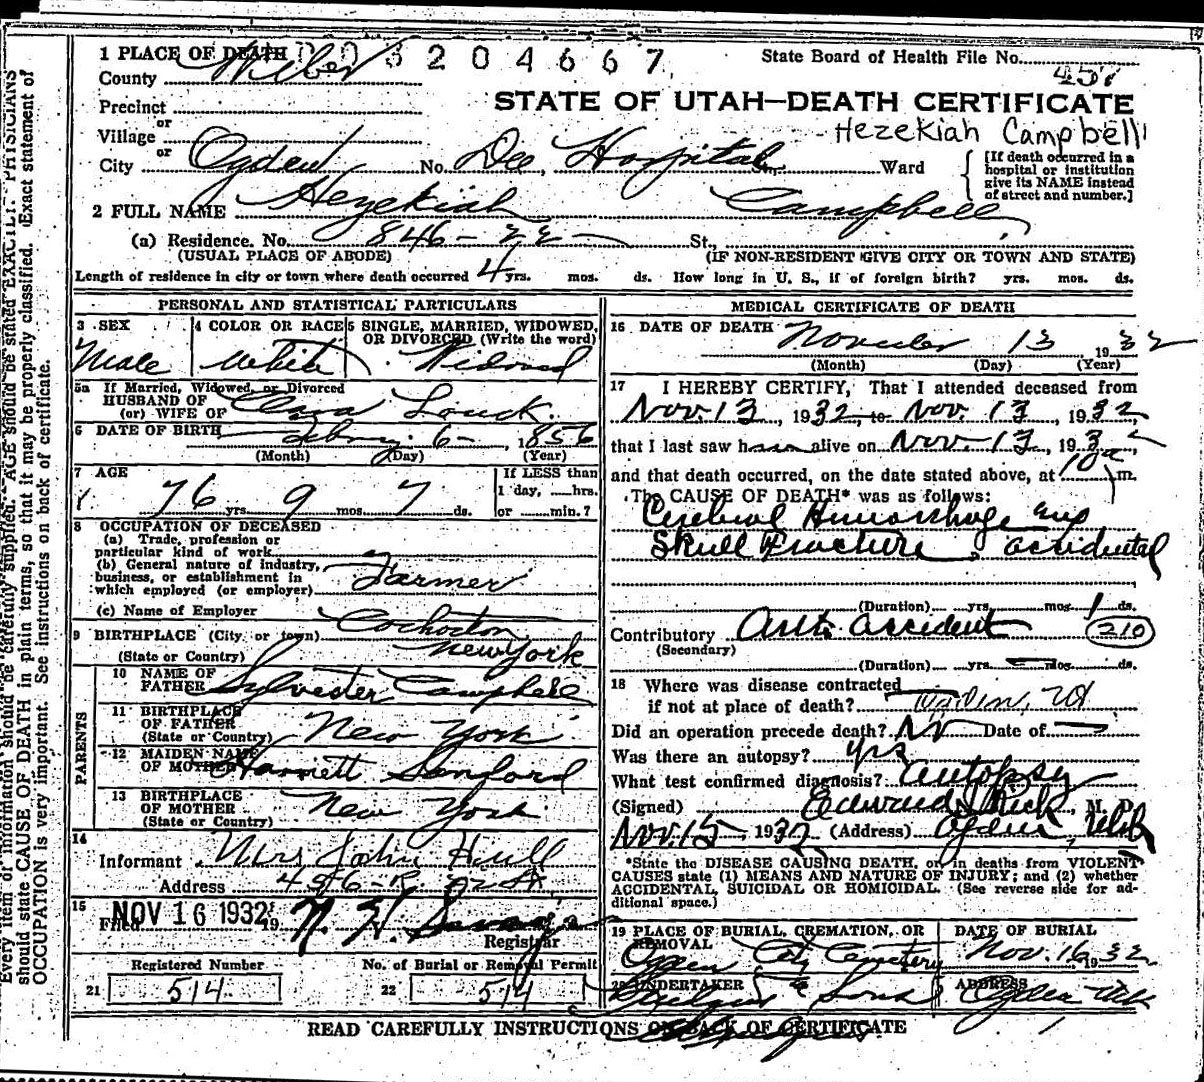 1 PLACE OF DEATH 3204667 State Board of Health File No. 451
County Weber
STATE OF UTAH—DEATH CERTIFICATE
Precinct
or
Hezekiah Campbell
Village
or
City Ogden No. Dee Hospital St., Ward
[If death occurred in a hospital or institution give its NAME instead of street and number.]
2 FULL NAME Hezekiah Campbell
(a) Residence. No. 846-22 St.,
(USUAL PLACE OF ABODE) (IF NON-RESIDENT GIVE CITY OR TOWN AND STATE)
Length of residence in city or town where death occurred 4 yrs. mos. ds. How long in U. S., if of foreign birth? yrs. mos. ds.
PERSONAL AND STATISTICAL PARTICULARS
3 SEX
Male
4 COLOR OR RACE
White
5 SINGLE, MARRIED, WIDOWED,
OR DIVORCED (Write the word)
Widowed
5a If Married, Widowed, or Divorced
HUSBAND OF
(or) WIFE OF Louck
6 DATE OF BIRTH Febry. 6- 1856
(Month) (Day) (Year)
7 AGE
76 yrs. 9 mos. 7 ds.
If LESS than
1 day, hrs.
or min.?
8 OCCUPATION OF DECEASED
(a) Trade, profession or
particular kind of work
(b) General nature of industry,
business, or establishment in
which employed (or employer) Farmer
(c) Name of Employer
9 BIRTHPLACE (City or town) Cochocton
(State or Country) New York
PARENTS
10 NAME OF
FATHER Sylvester Campbell
11 BIRTHPLACE
OF FATHER
(State or Country) New York
12 MAIDEN NAME
OF MOTHER Harriett Sanford
13 BIRTHPLACE
OF MOTHER
(State or Country) New York
14
Informant Mrs John Hull
Address
15
Filed NOV 16 1932 19
Registrar
Registered Number
21 514
No. of Burial or Removal Permit
22 514
MEDICAL CERTIFICATE OF DEATH
16 DATE OF DEATH November 13 1932
(Month) (Day) (Year)
17 I HEREBY CERTIFY, That I attended deceased from
Nov. 13, 1932, to Nov. 13, 1932
that I last saw him alive on Nov. 13, 1932
and that death occurred, on the date stated above, at 10 a m.
The CAUSE OF DEATH* was as follows:
Cerebral Hemorrhage and
Skull Fracture, accidental
(Duration) yrs. mos. 1 ds.
Contributory Auto accident 210
(Secondary)
(Duration) yrs. mos. ds.
18 Where was disease contracted
if not at place of death? Ogden, Ut
Did an operation precede death? No Date of
Was there an autopsy? yes
What test confirmed diagnosis? Autopsy
(Signed) M. D.
Nov. 15 1932 (Address) Ogden, Utah
*State the DISEASE CAUSING DEATH, or, in deaths from VIOLENT
CAUSES state (1) MEANS AND NATURE OF INJURY; and (2) whether
ACCIDENTAL, SUICIDAL OR HOMICIDAL. (See reverse side for ad-
ditional space.)
19 PLACE OF BURIAL, CREMATION, OR
REMOVAL
Ogden City Cemetery
DATE OF BURIAL
Nov. 16, 1932
20 UNDERTAKER
& Sons
ADDRESS
Ogden Utah
READ CAREFULLY INSTRUCTIONS ON BACK OF CERTIFICATE
Every item of information should be carefully supplied. AGE should be stated EXACTLY. PHYSICIANS
should state CAUSE OF DEATH in plain terms, so that it may be properly classified. Exact statement of
OCCUPATION is very important. See instructions on back of certificate.